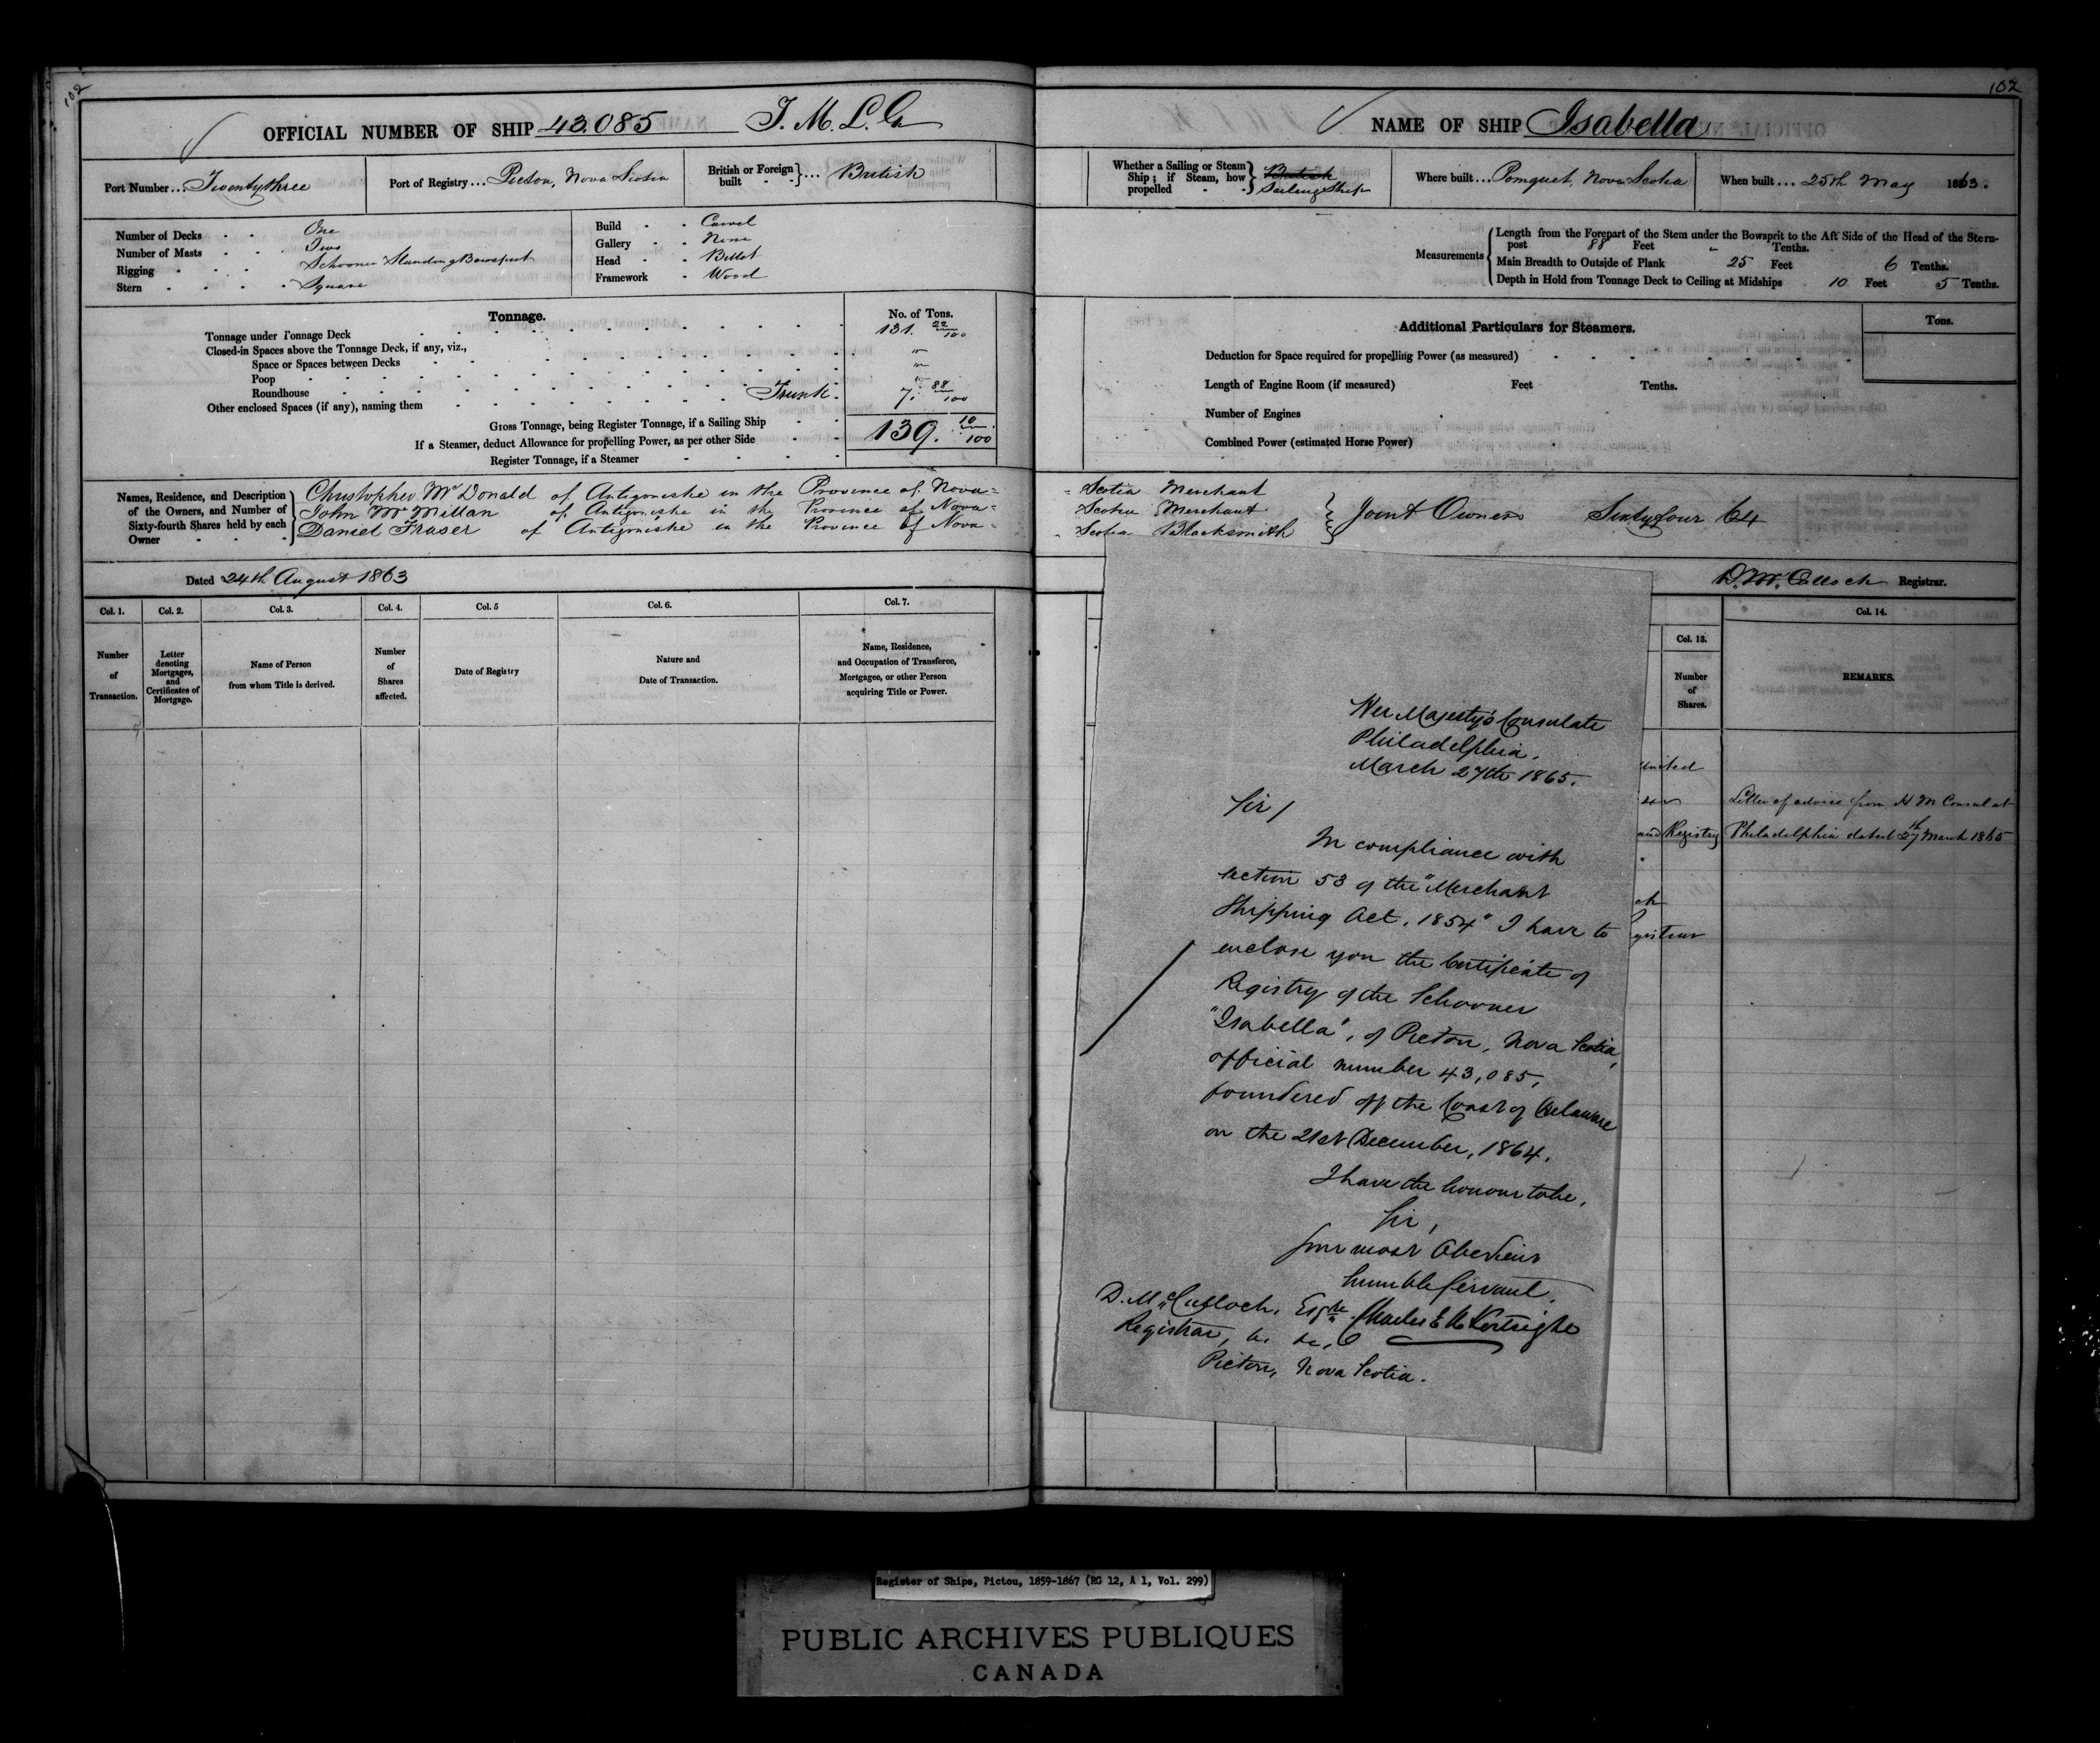 102
OFFICIAL NUMBER OF SHIP 43.085
Port Number ... Twentythree
Port of Registry ... Pictou, Nova Scotia
British or Foreign built - - } ... British
Number of Decks - - One
Number of Masts - - Two
Rigging - - - Schooner Standing Bowsprit
Stern - - - - Square
Build - - Carvel
Gallery - - None
Head - - Billet
Framework - Wood
Tonnage.
No. of Tons.
Tonnage under Tonnage Deck 131. 22/100
Closed-in Spaces above the Tonnage Deck, if any, viz., "
Space or Spaces between Decks "
Poop "
Roundhouse
Other enclosed Spaces (if any), naming them Trunk. 7. 88/100
Gross Tonnage, being Register Tonnage, if a Sailing Ship 139. 10/100
If a Steamer, deduct Allowance for propelling Power, as per other Side
Register Tonnage, if a Steamer
Names, Residence, and Description of the Owners, and Number of Sixty-fourth Shares held by each Owner
Christopher McDonald of Antigonishe in the Province of Nova=
John McMillan of Antigonishe in the Province of Nova=
Daniel Fraser of Antigonishe in the Province of Nova=
Dated 24th August 1863
Col. 1. Col. 2. Col. 3. Col. 4. Col. 5 Col. 6. Col. 7.
Number of Transaction.
Letter denoting Mortgages, and Certificates of Mortgage.
Name of Person from whom Title is derived.
Number of Shares affected.
Date of Registry
Nature and Date of Transaction.
Name, Residence, and Occupation of Transferee, Mortgagee, or other Person acquiring Title or Power.
102
NAME OF SHIP Isabella
Whether a Sailing or Steam Ship; if Steam, how propelled - - } British Sailing Ship
Where built ... Pomquet, Nova Scotia
When built ... 25th May 1863.
Measurements
Length from the Forepart of the Stem under the Bowsprit to the Aft Side of the Head of the Stern-
post 88 Feet " Tenths.
Main Breadth to Outside of Plank 25 Feet 6 Tenths.
Depth in Hold from Tonnage Deck to Ceiling at Midships 10 Feet 5 Tenths.
Additional Particulars for Steamers.
Tons.
Deduction for Space required for propelling Power (as measured)
Length of Engine Room (if measured) Feet Tenths.
Number of Engines
Combined Power (estimated Horse Power)
= Scotia Merchant
= Scotia Merchant
- Scotia Blacksmith
Joint Owners Sixtyfour 64
D. McCulloch Registrar.
Col. 13. Col. 14.
Number of Shares.
REMARKS.
United
and Registry
Letter of advice from H M Consul at
Philadelphia dated 27th March 1865
Her Majesty's Consulate
Philadelphia.
March 27th 1865.
Sir /
In compliance with
section 53 of the "Merchant
Shipping Act, 1854" I have to
enclose you the Certificate of
Registry of the Schooner
"Isabella", of Pictou, Nova Scotia,
official number 43,085,
foundered off the Coast of Delaware
on the 21st December, 1864.
I have the honour to be,
Sir,
Your most Obedient
humble Servant,
Charles E K Kortright
D. McCulloch, Esqre
Registrar, &c. &c,
Pictou, Nova Scotia.
Register of Ships, Pictou, 1859-1867 (RG 12, A 1, Vol. 299)
PUBLIC ARCHIVES PUBLIQUES
CANADA